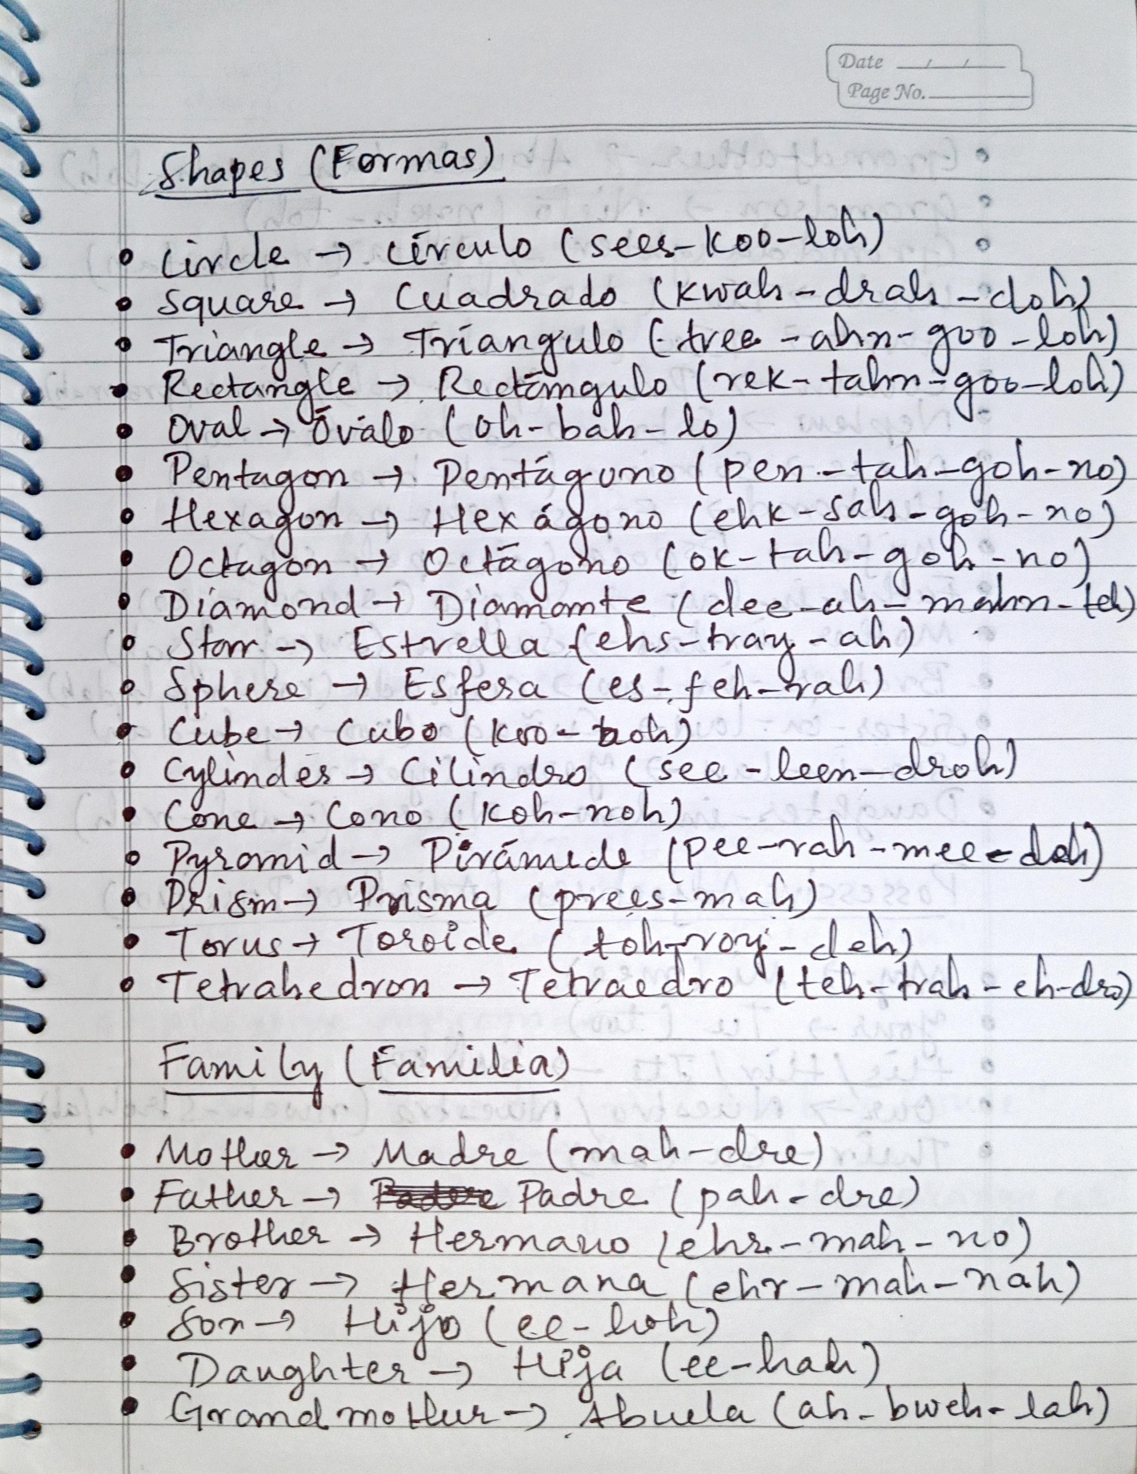 Date __/__/__
Page No.
Shapes (Formas)
• Circle → Círculo (sees-koo-loh)
• Square → Cuadrado (kwah-drah-doh)
• Triangle → Triángulo (tree-ahn-goo-loh)
• Rectangle → Rectángulo (rek-tahn-goo-loh)
• Oval → Óvalo (oh-bah-lo)
• Pentagon → Pentágono (pen-tah-goh-no)
• Hexagon → Hexágono (ehk-sah-goh-no)
• Octagon → Octágono (ok-tah-goh-no)
• Diamond → Diamante (dee-ah-mahn-teh)
• Star → Estrella (ehs-tray-ah)
• Sphere → Esfera (es-feh-rah)
• Cube → Cubo (koo-boh)
• Cylinder → Cilindro (see-leen-droh)
• Cone → Cono (koh-noh)
• Pyramid → Pirámide (pee-rah-mee-deh)
• Prism → Prisma (prees-mah)
• Torus → Toroide (toh-roy-deh)
• Tetrahedron → Tetraedro (teh-trah-eh-dro)
Family (Familia)
• Mother → Madre (mah-dre)
• Father → Padre (pah-dre)
• Brother → Hermano (ehr-mah-no)
• Sister → Hermana (ehr-mah-nah)
• Son → Hijo (ee-hoh)
• Daughter → Hija (ee-hah)
• Grandmother → Abuela (ah-bweh-lah)